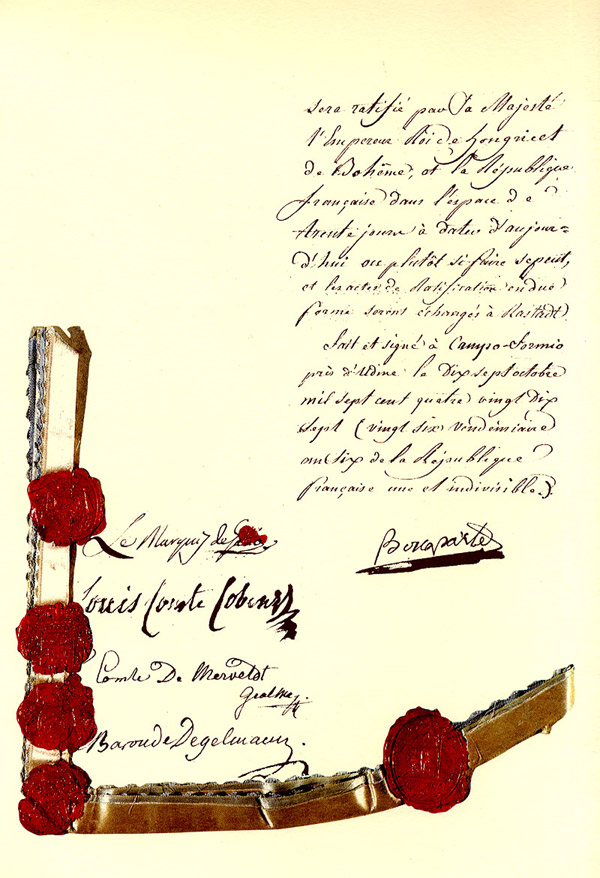 sera ratifié par Sa Majesté
l'Empereur Roi de hongrie et
de Bohême, et la République
française dans l'espace de
trente jours à dater d'aujour=
d'hui ou plutôt si faire se peut,
et les actes de Ratification en due
forme seront échangés à Rastadt.
Fait et signé à Campo-Formio
près d'Udine le Dix sept octobre
mil sept cent quatre vingt Dix
sept (vingt six vendémiaire
an six de la République
française une et indivisible.)
Bonaparte
Le Marquis de Gallo
Louis Comte Cobenzl
Comte De Merveldt
Baron de Degelmann.